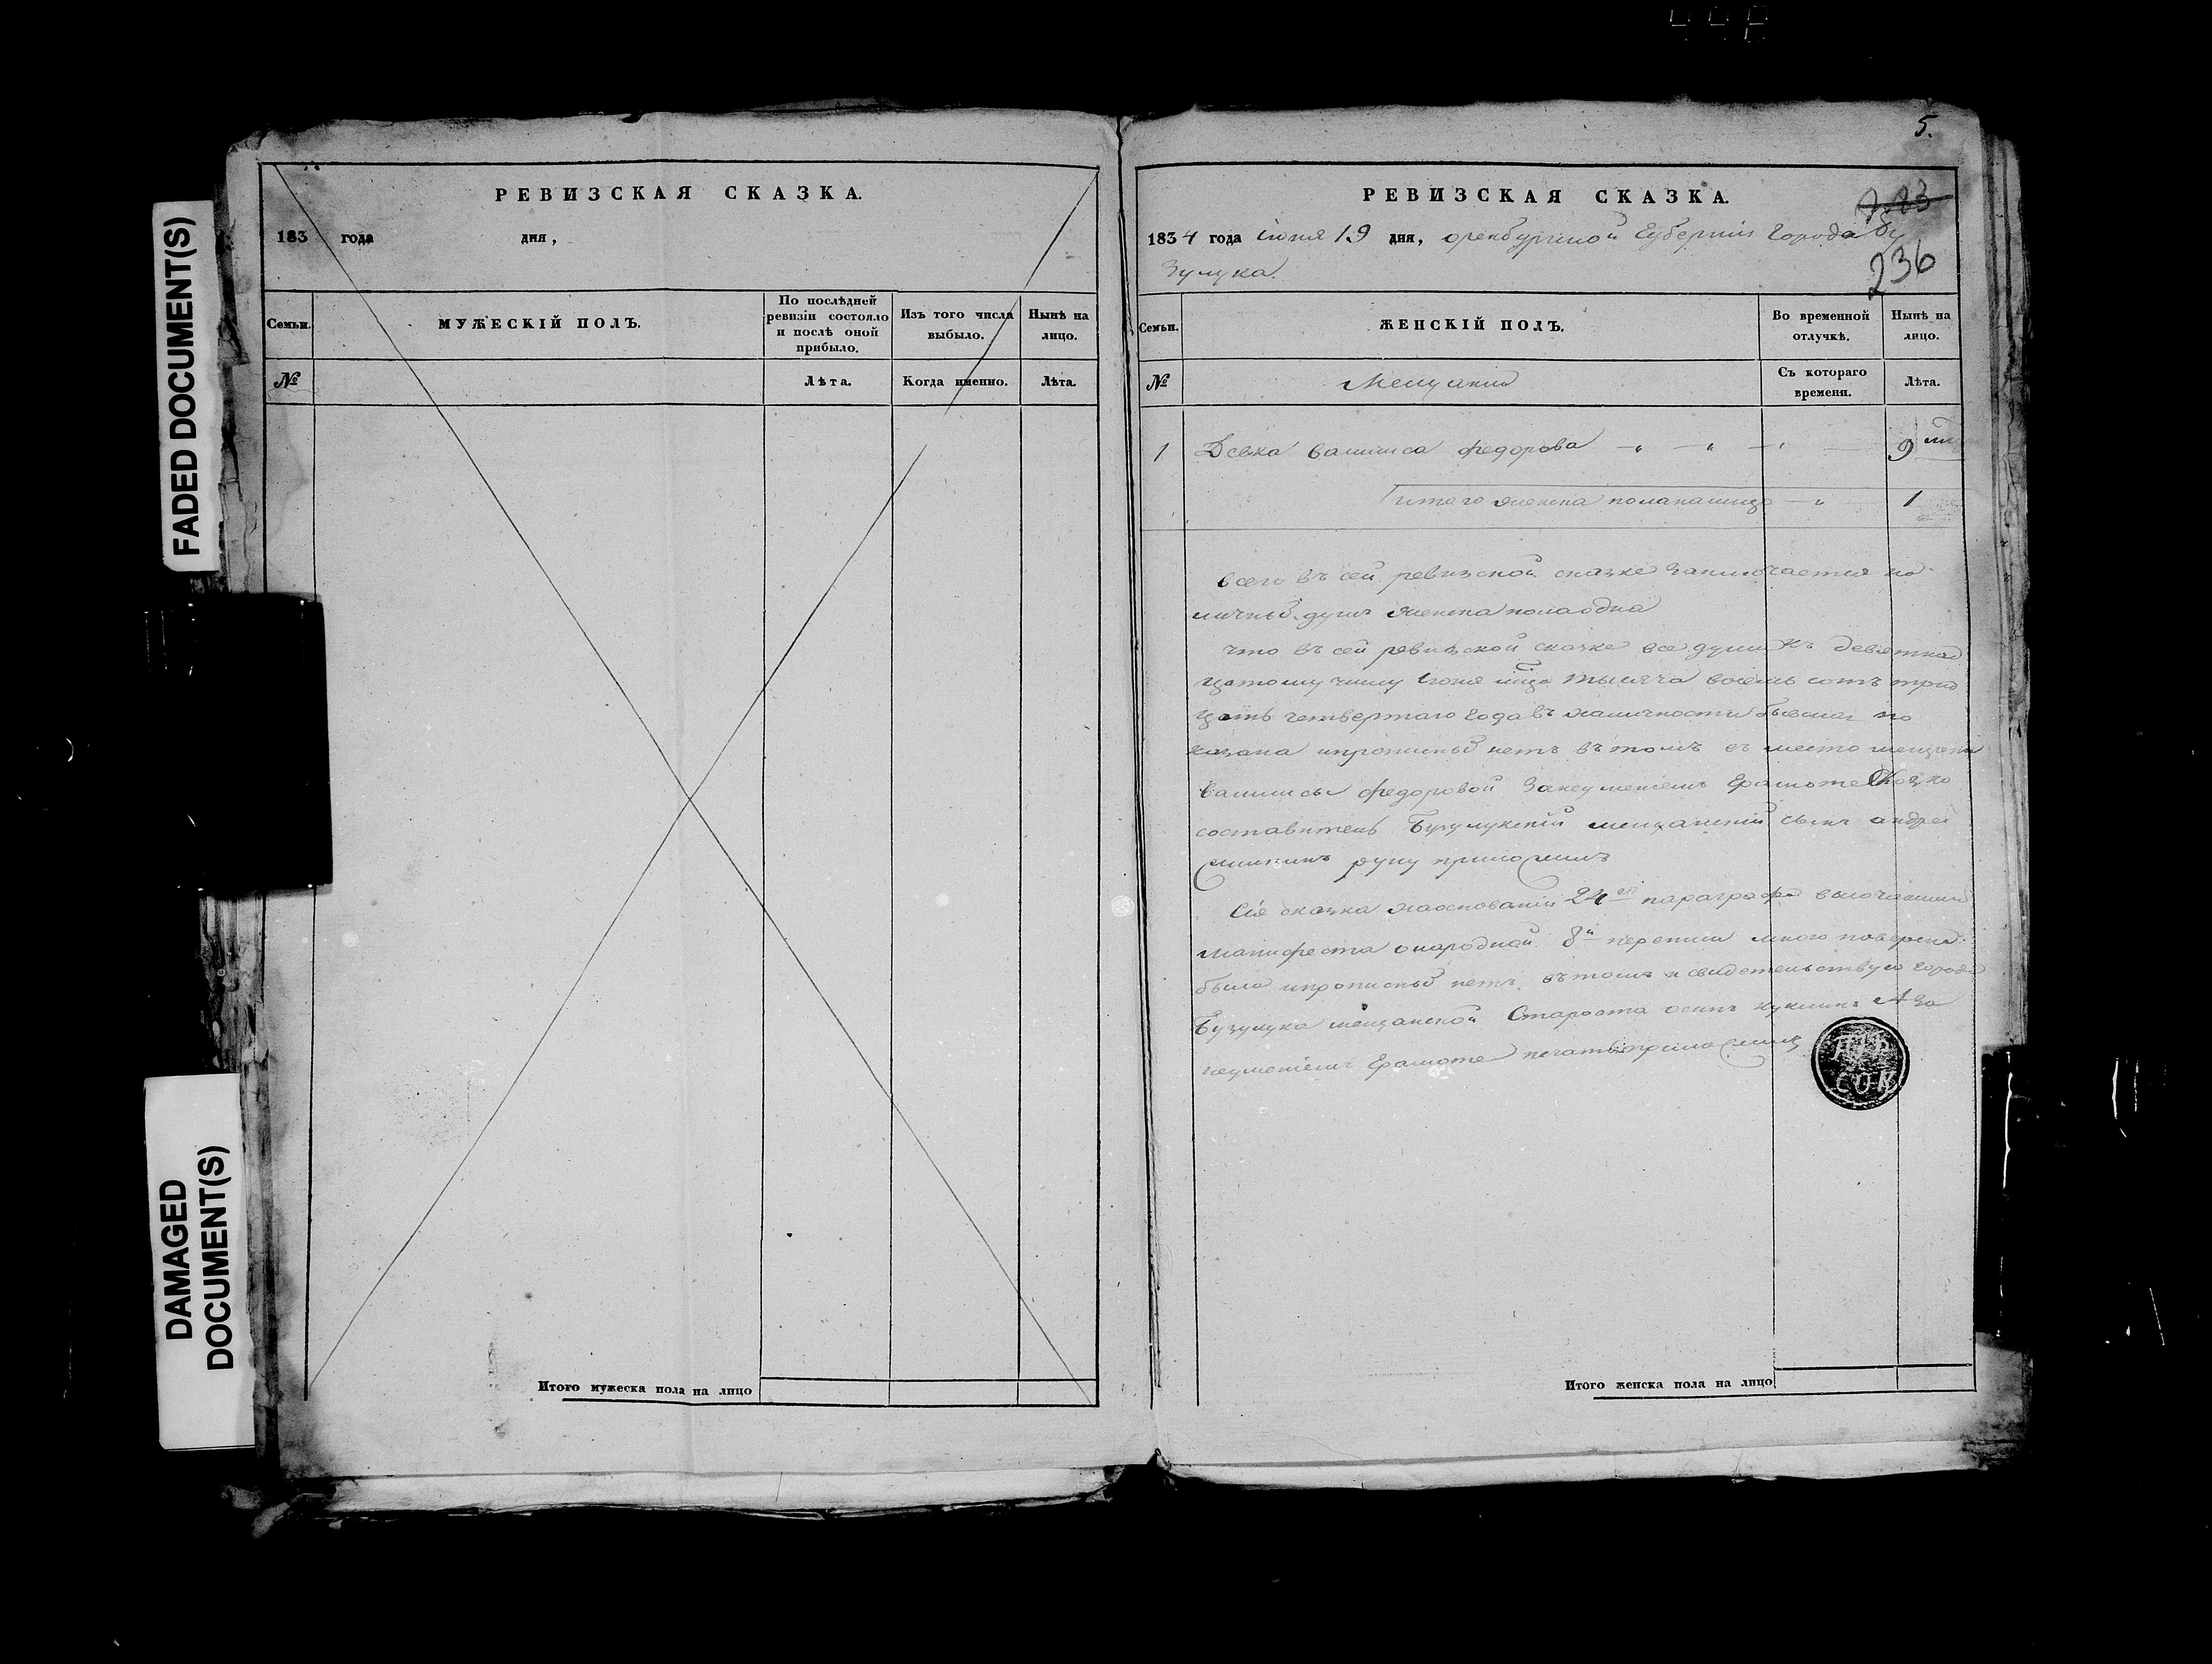 FADED DOCUMENT(S)
DAMAGED
DOCUMENT(S)
РЕВИЗСКАЯ СКАЗКА.
183 года дня,
Семьи.
МУЖЕСКІЙ ПОЛЪ.
По послѣдней
ревизіи состояло
и послѣ оной
прибыло.
Изъ того числа
выбыло.
Нынѣ на
лицо.
№
Лѣта.
Когда именно.
Лѣта.
Итого мужеска пола на лицо
5.
РЕВИЗСКАЯ СКАЗКА.
1834 года іюня 19 дня, оренбургской Губерніи Города бу
зулука.
236
Семьи.
ЖЕНСКІЙ ПОЛЪ.
Во временной
отлучкѣ.
Нынѣ на
лицо.
№
Мещанки
Съ котораго
времени.
Лѣта.
1 Девка федорова 9
итого женска пола налицо 1
всего въ сей ревизской сказке заключается на
личныхъ душъ женска пола одна
что въ сей ревизской сказке все души къ девятнад
цатому числу Іюня тысяча восемь сотъ трид
цать четвертаго года въ наличности бывшая по
казана ипрописныхъ нетъ въ томъ въ место мещанки
федоровой За неумениемъ Грамоте Сказко
составитель Бузулукскій мещанскій сынъ андрей
руку приложилъ
Сія сказка наосновании 24го параграфа высочайшаго
манифеста онародной 8й переписи мною поверена
была ипрописныхъ нетъ. въ томъ и свидетельствую города
Бузулука мещанской Староста осипъ куклинъ А за
неумениемъ Грамоте печать приложилъ
Итого женска пола на лицо